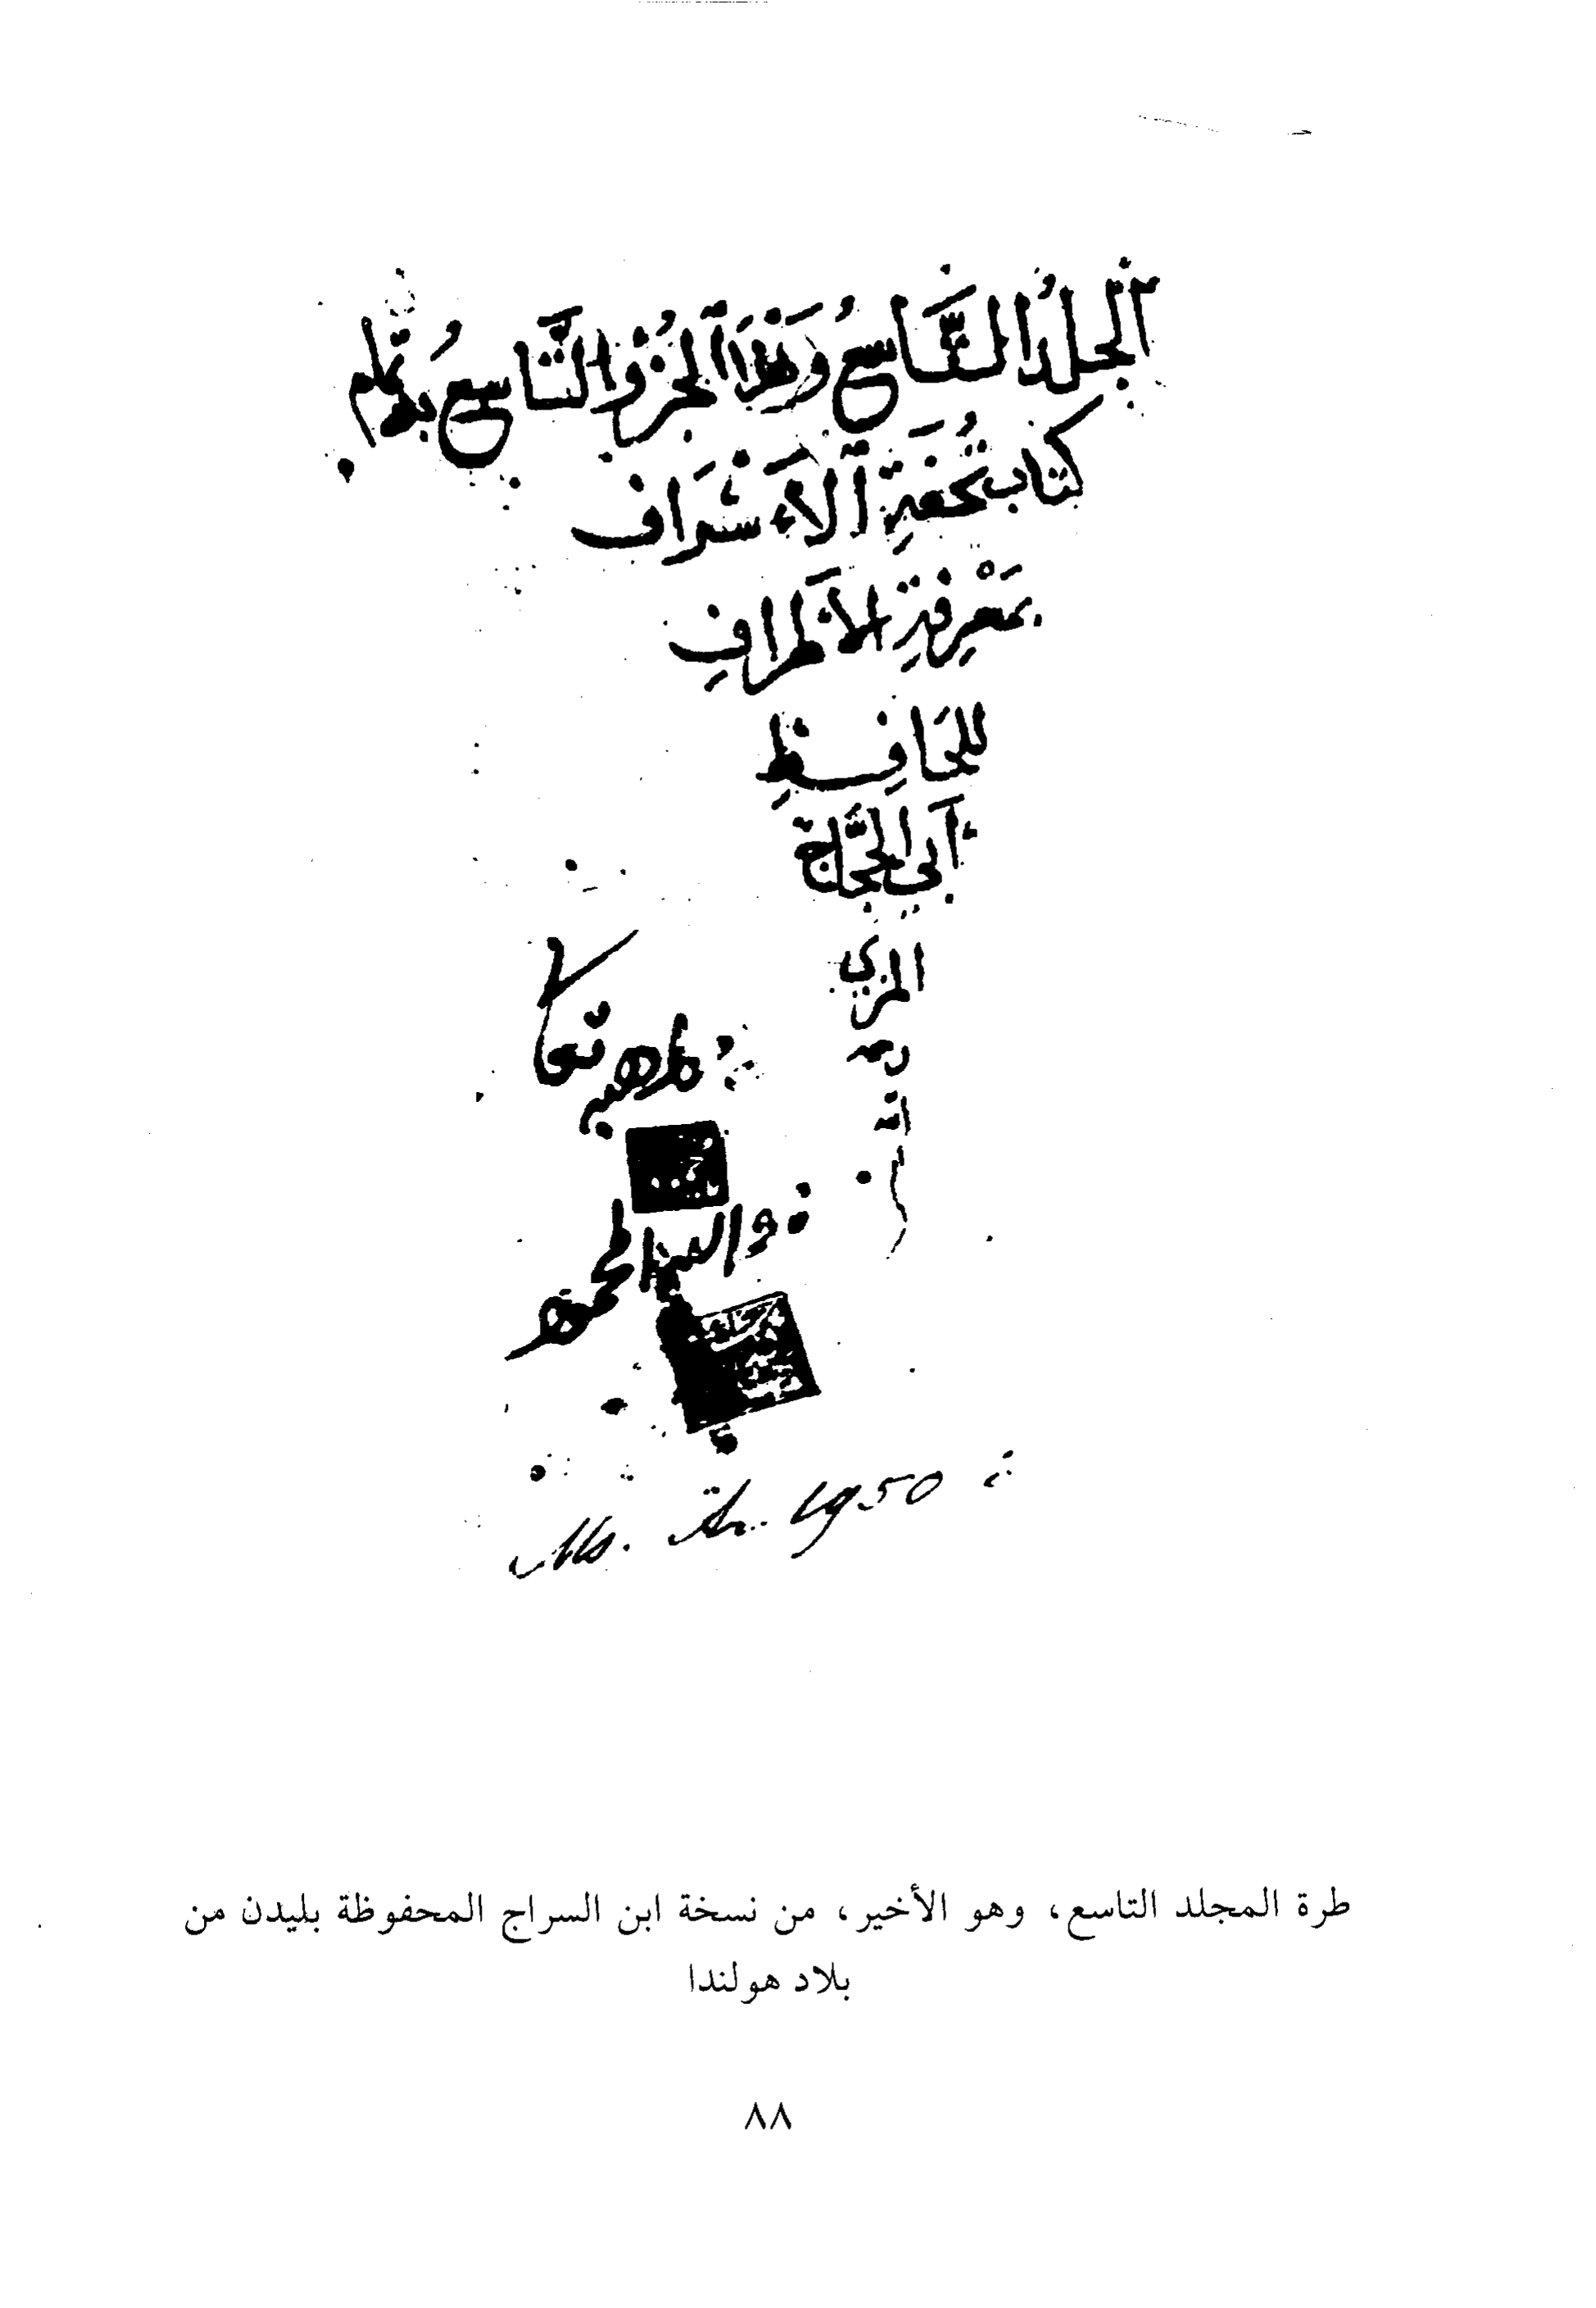 اَلْمجلدُ التَّاسعُ وَهَذَا الجُزْؤ التَّاسعُ
كتاب تُحفَةِ الأَشْرَاف
بمَعْرِفَةِ الأَطرافِ
للحَافِظِ
أَبي الحَجَّاج
المزي
رحمه
الله
تعا
Ms. Ar. 1950
طرة المجلد التاسع، وهو الأخير، من نسخة ابن السراج المحفوظة بليدن من
بلاد هولندا
٨٨